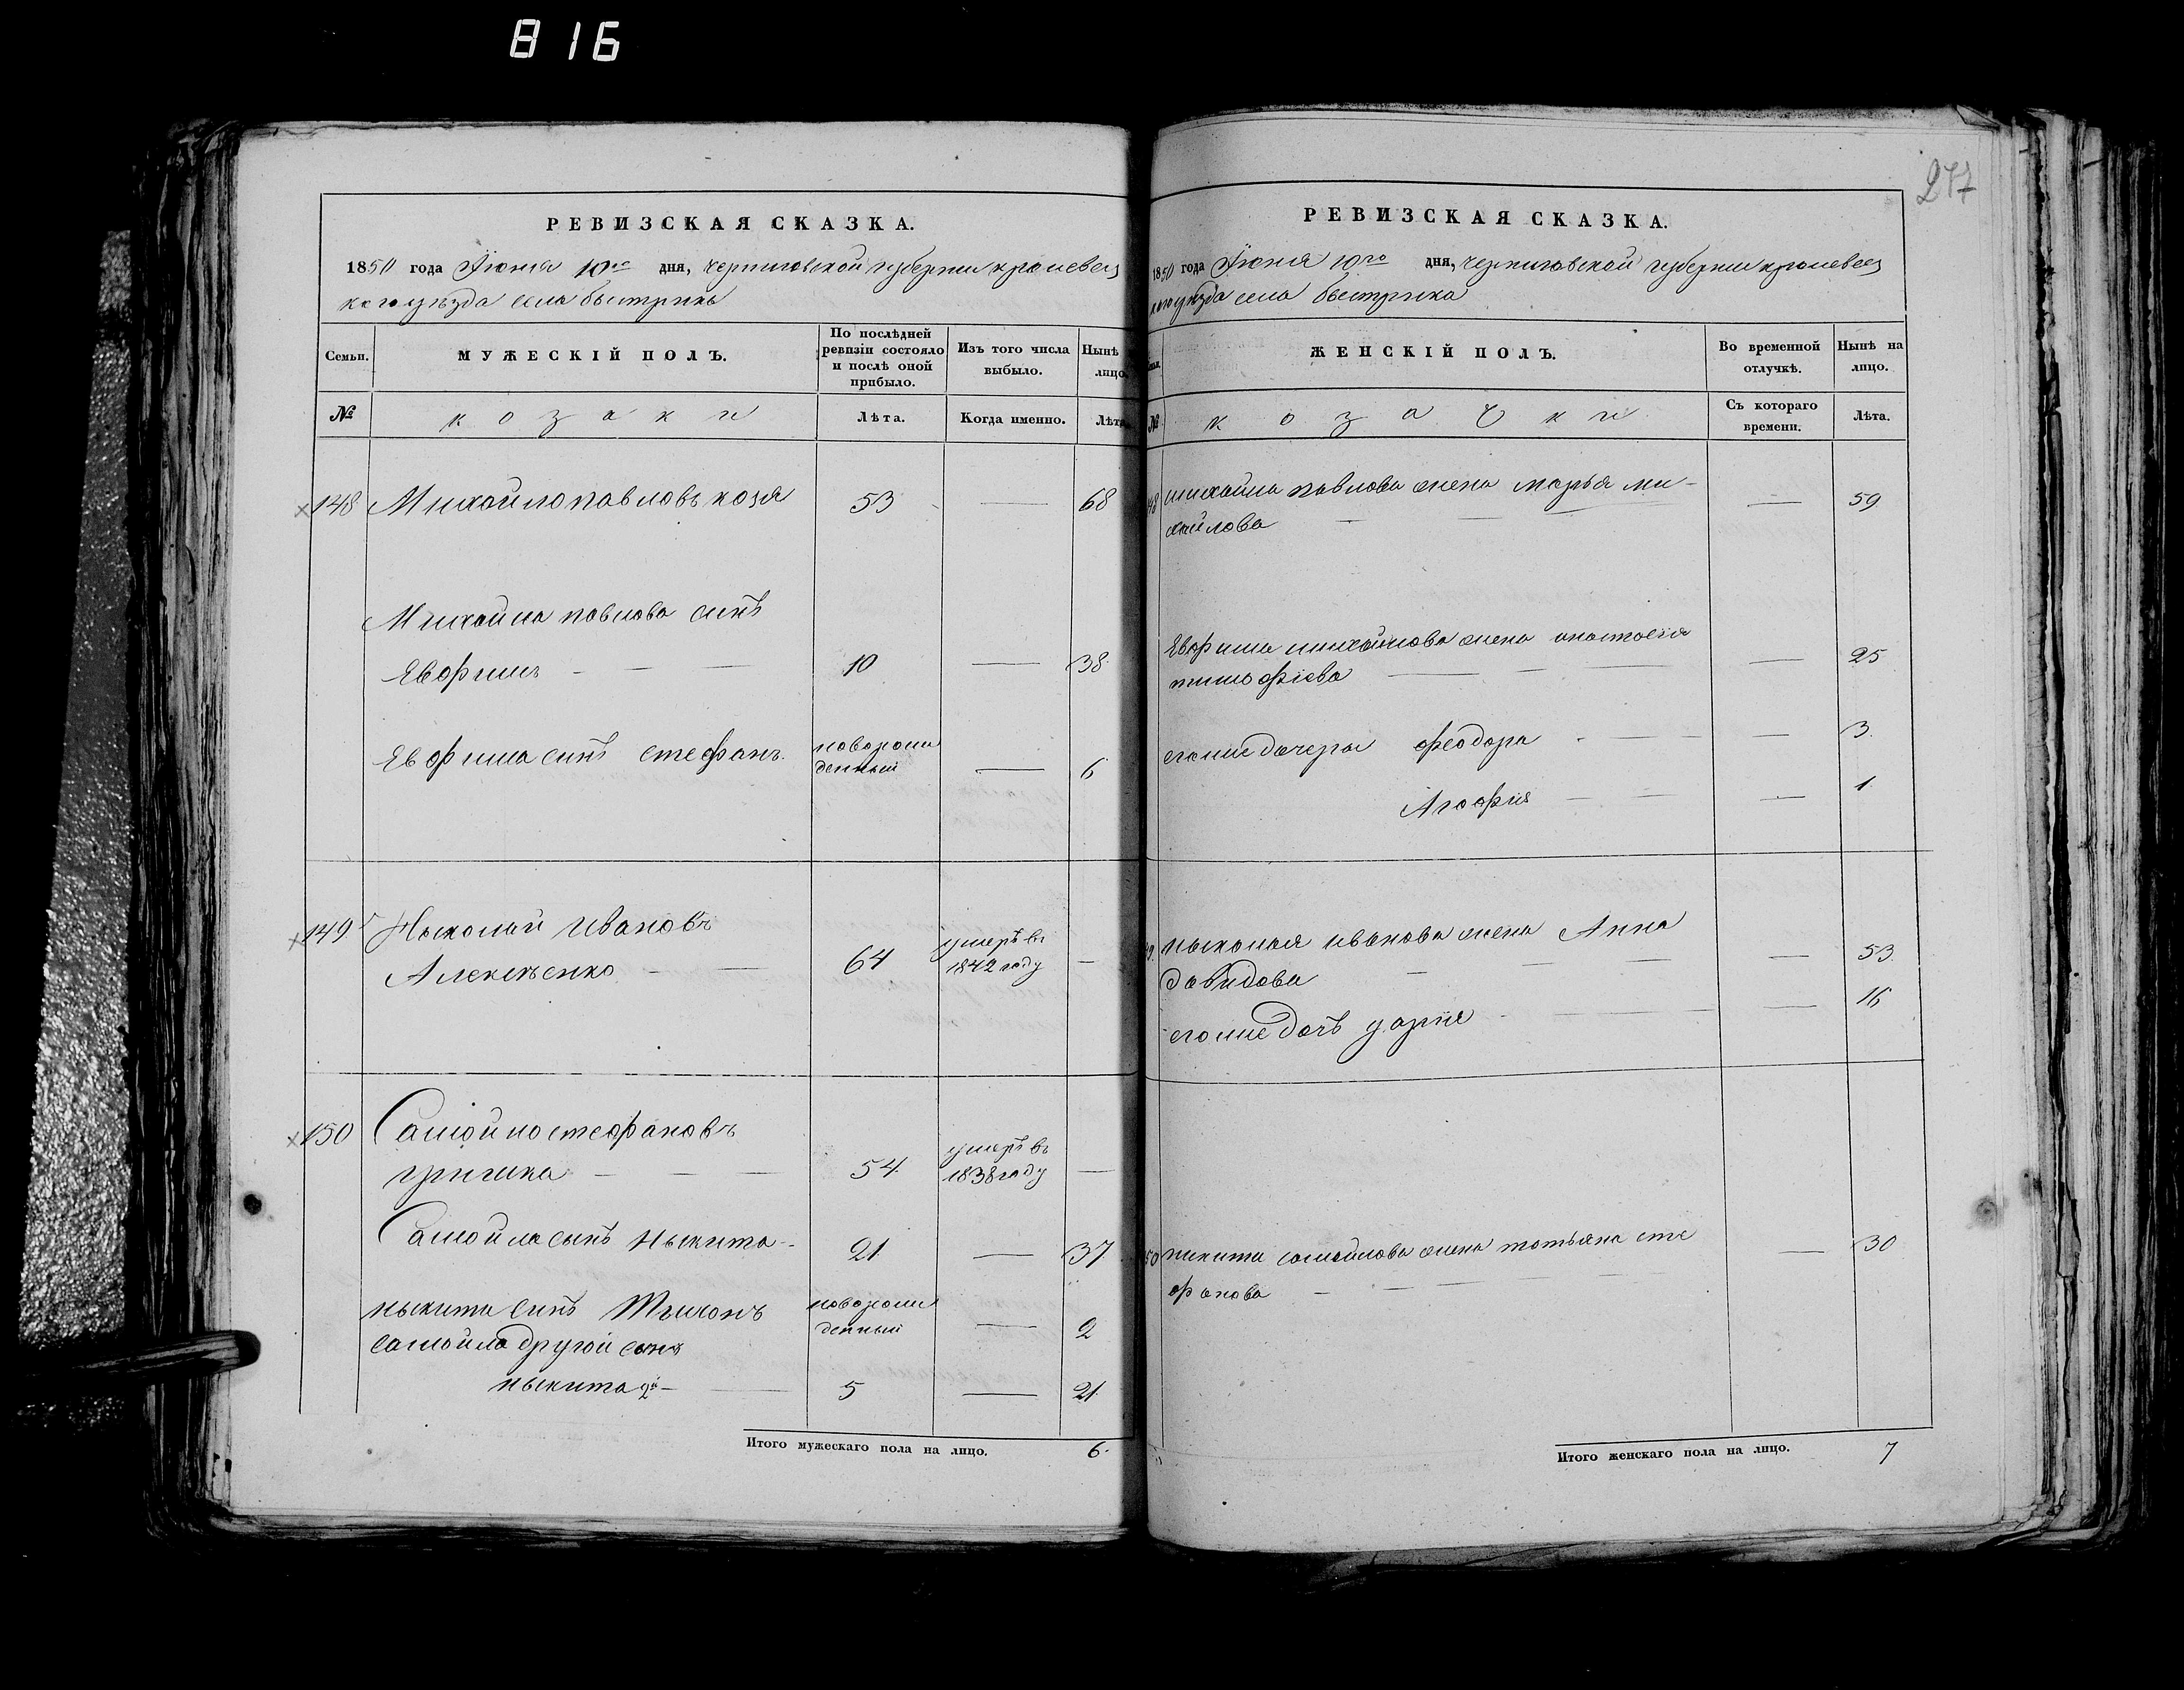 816
277
РЕВИЗСКАЯ СКАЗКА.
1850 года Іюня 10го дня, черниговской губернии кролевец
каго уезда села быстрика
Семьи. МУЖЕСКІЙ ПОЛЪ. По послѣдней ревизіи состояло и послѣ оной прибыло. Изъ того числа выбыло. Нынѣ лицо.
№ козаки Лѣта. Когда именно. Лѣта
148 Михайло павловъ козя 53 — 68
Михайла павлова синъ
Евфимъ — — 10 — 38
Евфима синъ стефанъ. новорож
денный — 6
149 Ныколай Ивановъ
Алексѣенко — — 64 умеръ въ
1842 году —
150 Самойло стефановъ
54 умеръ въ
1838 году —
Самойла сынъ Ныкита 21 — 37
Ныкиты синъ Тыхонъ новорож
денный — 2
самойла другой сынъ
Ныкита 2й — 5 — 21
Итого мужескаго пола на лицо. 6.
РЕВИЗСКАЯ СКАЗКА.
1850 года Іюня 10го дня, черниговской губернии кролевец
каго уезда села быстрика
ЖЕНСКІЙ ПОЛЪ. Во временной отлучкѣ. Нынѣ на лицо.
№ козачки Съ котораго времени. Лѣта.
148 михайла павлова жена марья ми-
хайлова — — — 59
Евфима михайлова жена анастасія
тимофіева — — — 25
егоже дочеры феодора — — 3
Агафия — — — 1
149 ныколая иванова жена Анна
давидова — — — 53
егоже дочъ дария — — 16
150 никиты самойлова жена татьяна сте
фанова — — — 30
Итого женскаго пола на лицо. 7